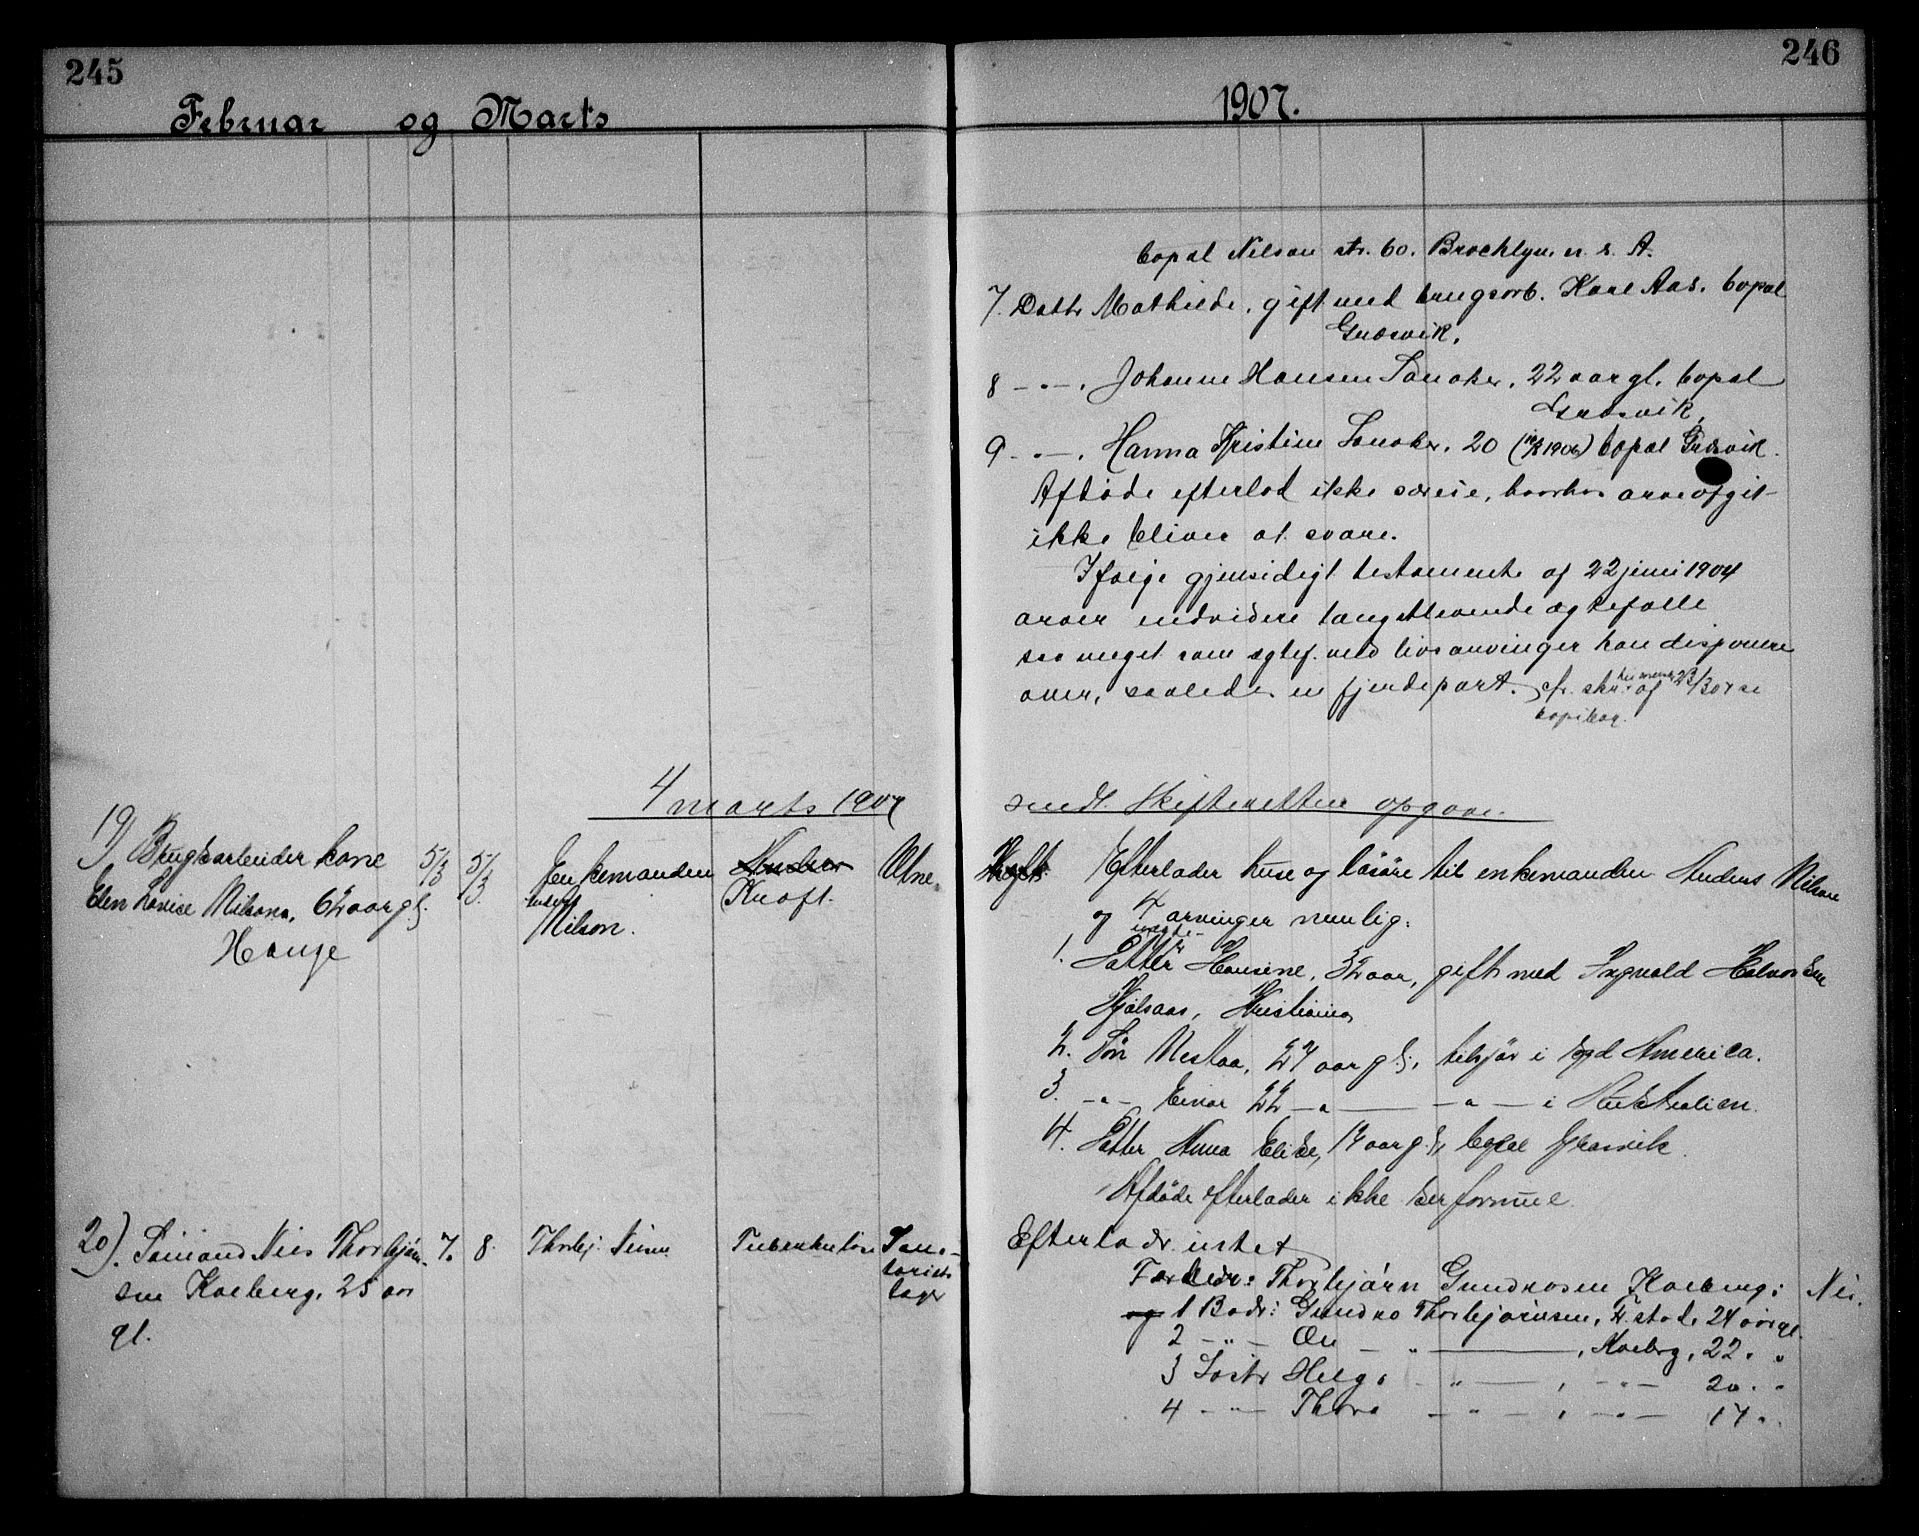 245
246
Februar og Marts
1907.
bopæl Nilson str. 60. Brocklyn. u. s. A.
7. Dattr Mathilde, gift med brugsarb. Karl Aas. bopæl
Græsvik.
8 - „ - . Johanne Hansen, 22 aar gl. bopæl
Græsvik.
9 - „ - . Hanna Kristine, 20 ( 1906) bopæl Græsvik.
Afdøde efterlod ikke særeie, hvorhos arveafgift
ikke bliver at svare.
Ifølge gjensidigt testamente af 22 juni 1904
arver endvidere længstlevende ægtefælle
saa meget som ægtef. med livsarvinger kan disponere
over, saaledes en fjerdepart. cfr. skr. af se
kopibog.
4 marts 1907
sendt Skifteretten opgave.
19) Brugsarbeider kone
Elen Lovise Nilsens, 62 aar gl.
Hauge
5/3
5/3
Enkemanden
Anders
Nilson.
Anders
Kræft.
Utne
Kræft
Efterlader huse og løsøre til enkemanden Anders Nilson
og 4 arvinger nemlig:
1. Datter Hansine, 32 aar, gift med Ingvald Halvorsen
Kjølsaas, Kristiania
2. Søn, 24 aar gl, tilsjøs i America.
3. - „ - Einar 22 - „ - - „ - i Australien.
4. Datter Anna Elise, 14 aar gl, bopæl Græsvik.
Afdøde efterlader ikke særformue.
20). Sømand Nils Thorbjørn-
sen Kolberg. 25 aar
gl.
7.
8.
Thorbj. Nilsen
Tuberkulose
Sana-
torie
læge
Efterlader intet
Forældre: Thorbjørn Gundrosen Kolberg;
og 1 Brodr: Gundro Thorbjørnsen, Fr.stad, 24 aar gl.
2 - „ - Ole - „ - , Kolberg, 22 „ „
3 Søstr Helga - „ - , - „ - 20 „ „
4 - „ - Thora - „ - , - „ - 14 „